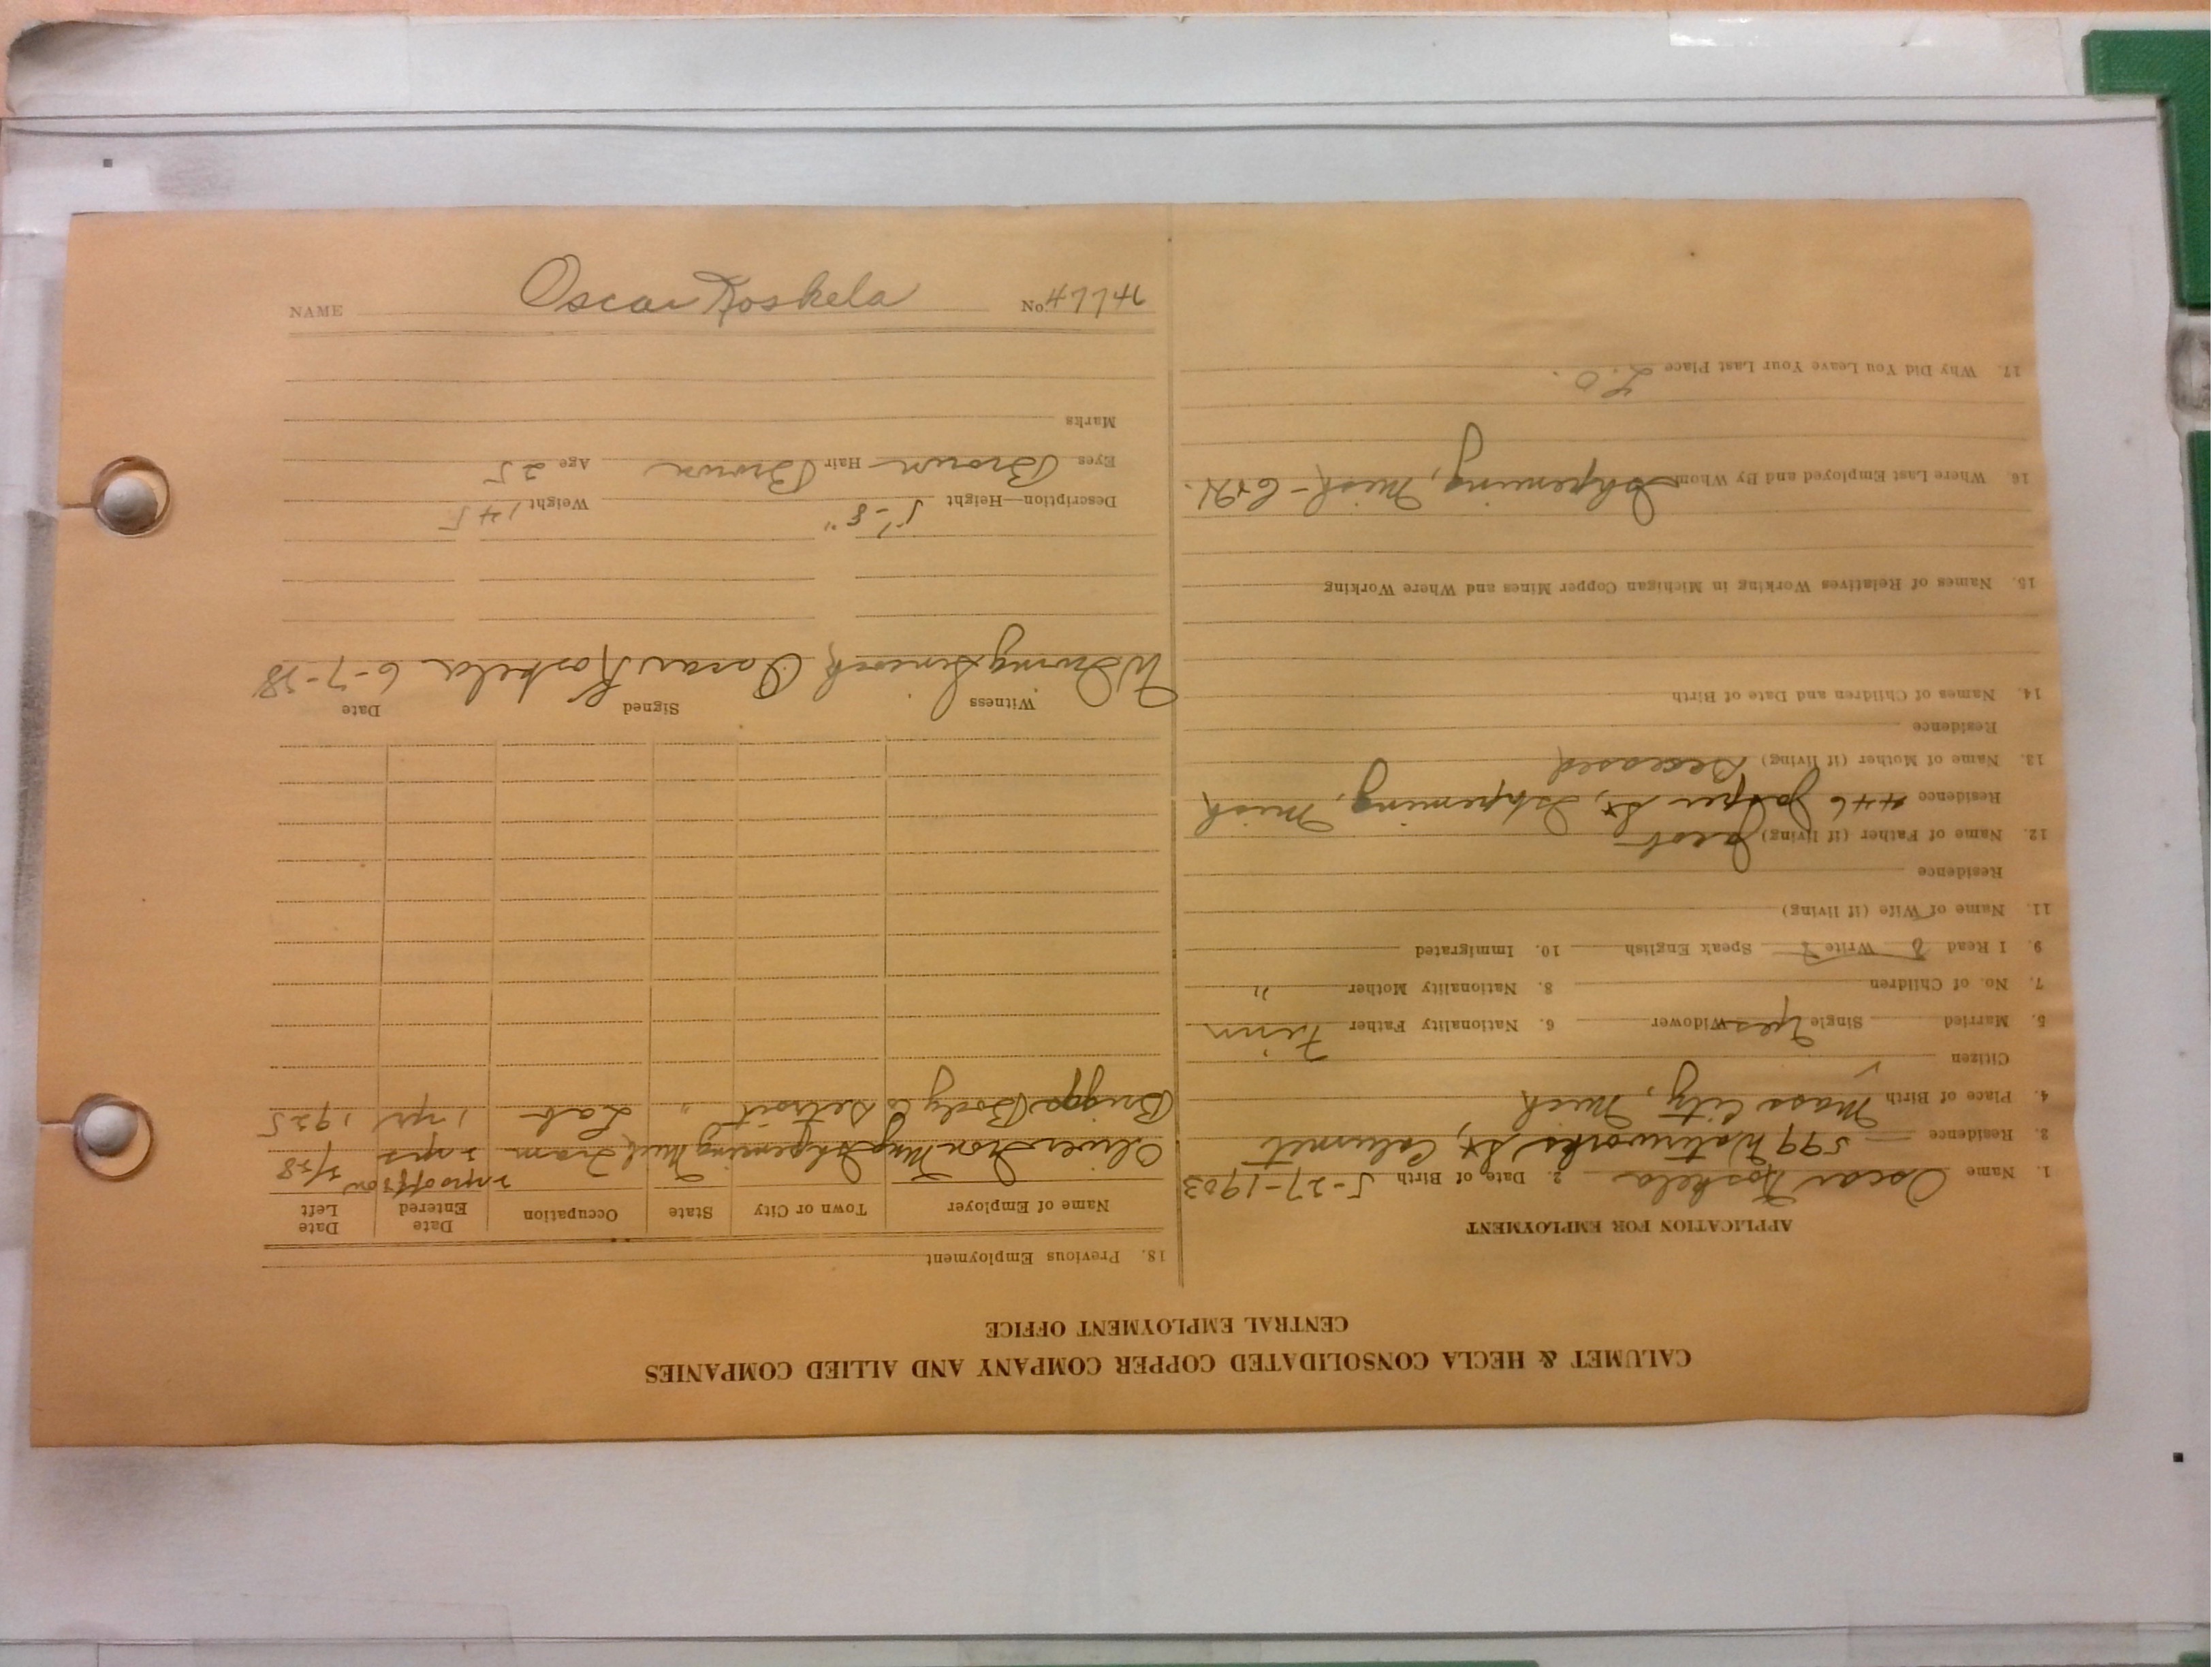 CALUMET & HECLA CONSOLIDATED COPPER COMPANY AND ALLIED COMPANIES
CENTRAL EMPLOYMENT OFFICE
APPLICATION FOR EMPLOYMENT
1. Name Oscar Koskela 2. Date of Birth 5-27-1903
3. Residence 599 Waterworks St, Calumet
4. Place of Birth Mass City, Mich
Citizen
5. Married Single Yes Widower 6. Nationality Father Finn
7. No. of Children 8. Nationality Mother "
9. I Read Write Speak English 10. Immigrated
11. Name of Wife (if living)
Residence
12. Name of Father (if living) Jacob
Residence 446 Jasper St, Ishpeming, Mich
13. Name of Mother (if living) Deceased
Residence
14. Names of Children and Date of Birth
15. Names of Relatives Working in Michigan Copper Mines and Where Working
16. Where Last Employed and By Whom Ishpeming, Mich - C&H.
17. Why Did You Leave Your Last Place L.O.
18. Previous Employment
Name of Employer Town or City State Occupation Date Entered Date Left
2 yrs off & on
Oliver Iron Mng Ishpeming Mich Tram 2 yrs
Briggs Body Co Detroit " Lab 1 yr 1925
Witness Signed Date
W Irving Oscar Koskela 6-7-28
Description—Height 5'-8" Weight 145
Eyes Brown Hair Brown Age 25
Marks
NAME Oscar Koskela No. 47746